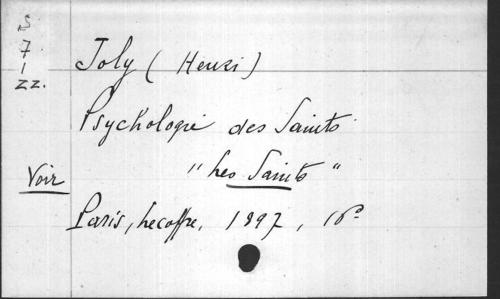 S
7
1
22.
Joly (Henri)
Psychologie des Saints
Voir "Les Saints"
Paris, Lecoffre, 1897, 16°